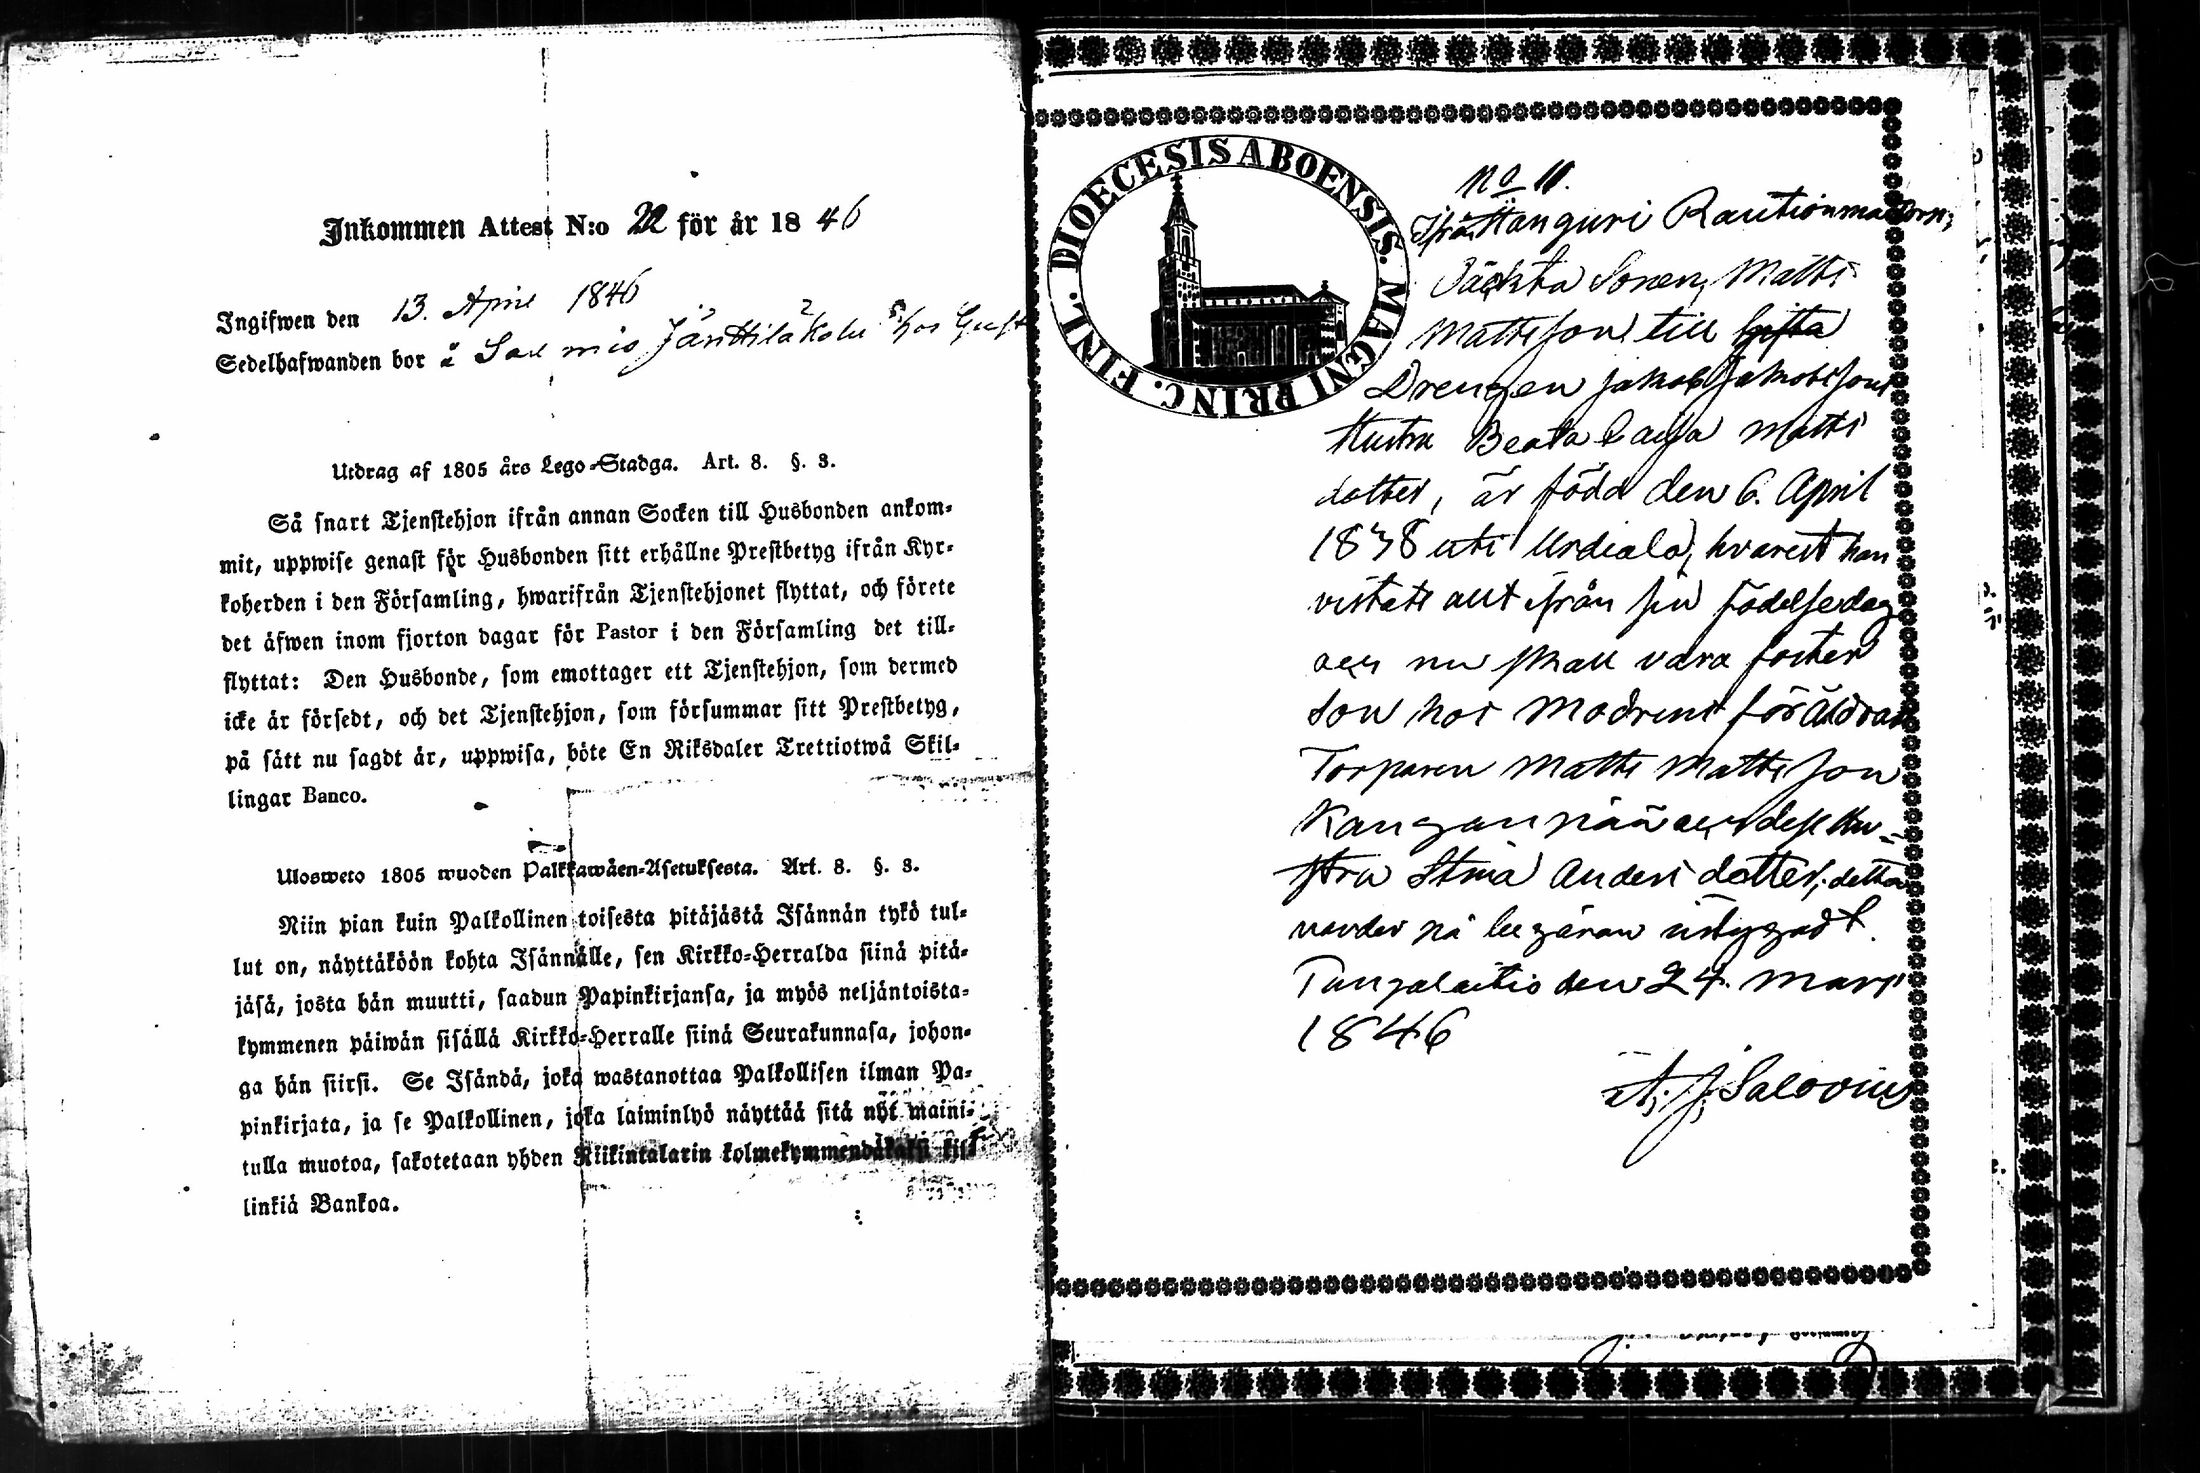 Inkommen Attest N:o 22 för år 1846
Ingifwen den 13. April 1846
Sedelhafwanden bor å Salmis Jänttilä hos
Utdrag af 1805 års Lego-Stadga. Art. 8. §. 3.
Så snart Tjenstehjon ifrån annan Socken till Husbonden ankom-
mit, uppwise genast för Husbonden sitt erhållne Prestbetyg ifrån Kyr-
koherden i den Församling, hwarifrån Tjenstehjonet flyttat, och förete
det äfwen inom fjorton dagar för Pastor i den Församling det till-
flyttat: Den Husbonde, som emottager ett Tjenstehjon, som dermed
icke är försedt, och det Tjenstehjon, som försummar sitt Prestbetyg,
på sätt nu sagdt är, uppwisa, böte En Riksdaler Trettiotwå Skil-
lingar Banco.
Ulosweto 1805 wuoden Palkkawäen-Asetuksesta. Art. 8. §. 3.
Niin pian kuin Palkollinen toisesta pitäjästä Isännän tykö tul-
lut on, näyttäköön kohta Isännälle, sen Kirkko-Herralda siinä pitä-
jäsä, josta hän muutti, saadun Papinkirjansa, ja myös neljäntoista-
kymmenen päiwän sisällä Kirkko-Herralle siinä Seurakunnasa, johon-
ga hän siirsi. Se Isändä, joka wastanottaa Palkollisen ilman Pa-
pinkirjata, ja se Palkollinen, joka laiminlyö näyttää sitä nyt maini-
tulla muotoa, sakotetaan yhden Riikintalarin kolmekymmendäkaksi kil-
linkiä Bankoa.
DIOECESIS ABOENSIS. MAGNI PRINC. FINL.
No 11.
Ifrån Hanguri Rautionmaa Torp,
Oäckta Sonen, Matts
Mattsson till Gifta
Drengen Jakob Jakobssons
Hustru Beata Caisa Matts
dotter, är född den 6. April
1838 uti Urdiala, hvarest han
vistats allt ifrån sin födelsedag
och nu skall vara foster
son hos Modrens föräldrar
Torparen Matts Mattsson
Kanganpää och dess Hu-
stru Stina Anders dotter; detta
varder på begäran intygadt.
Tungalaitio den 24. Mars
1846
A. J. Salovius